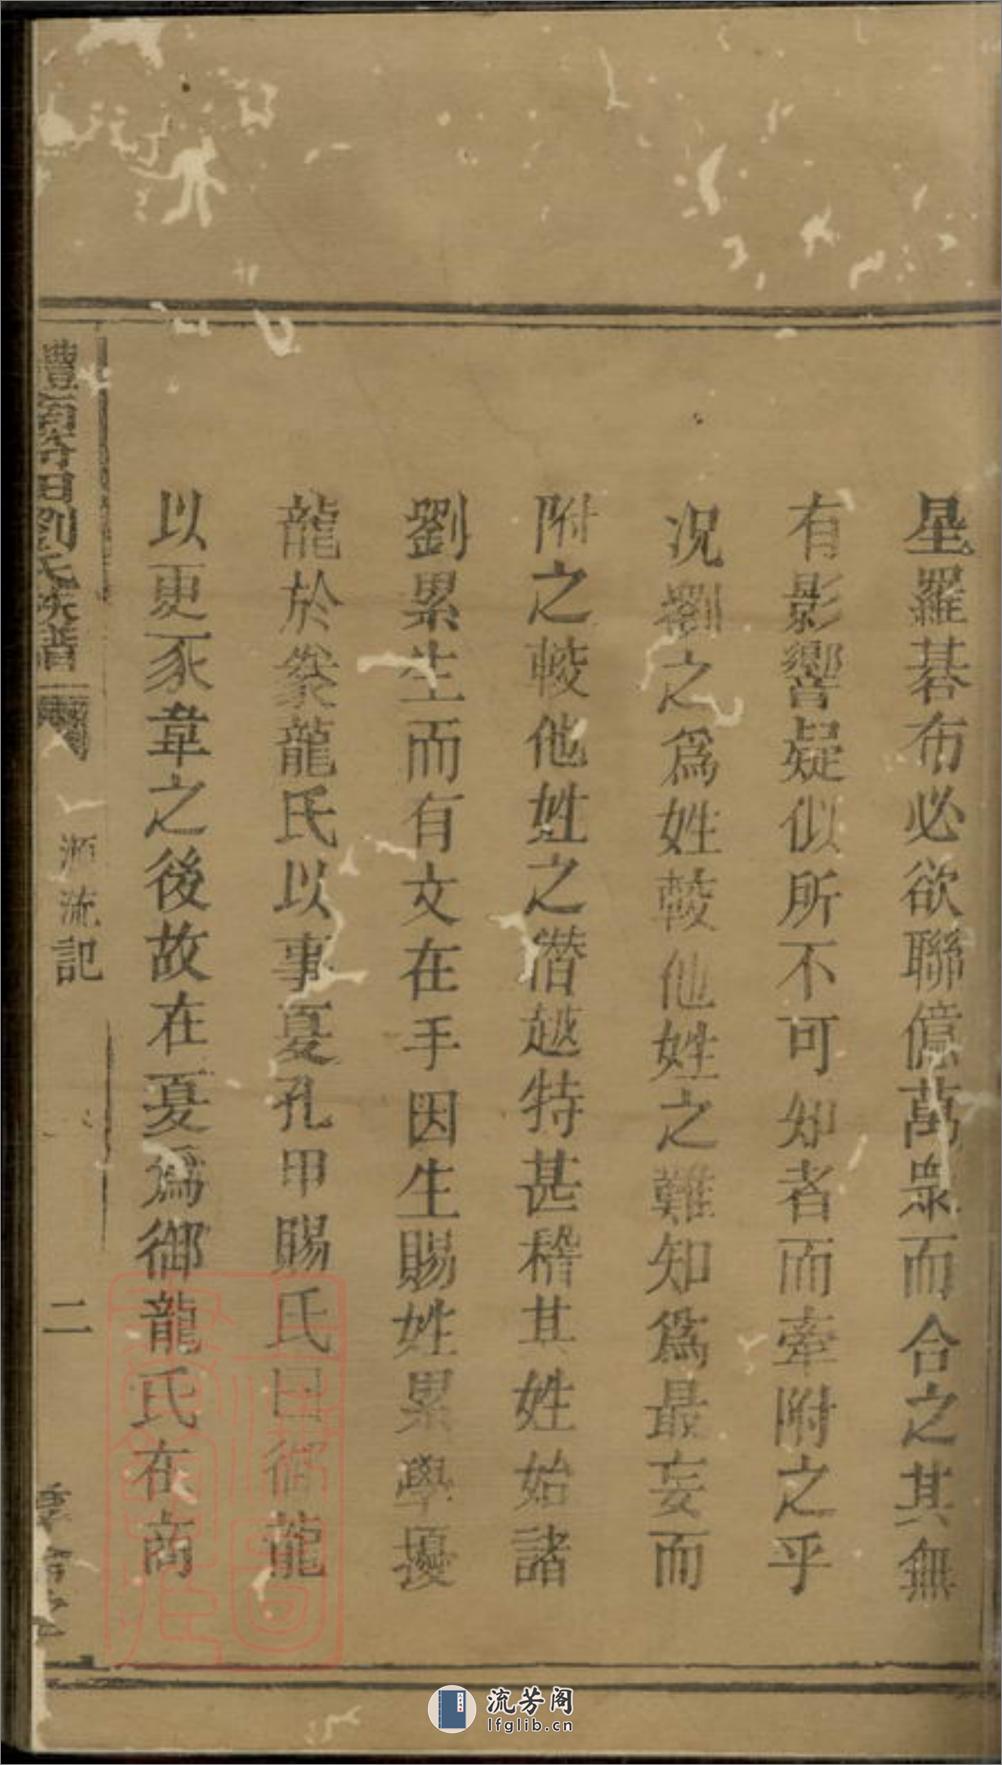 星羅碁布必欲聯億萬衆而合之其無
有影響疑似所不可知者而牽附之乎
況劉之爲姓較他姓之難知爲最妄而
附之較他姓之潛越特甚稽其姓始諸
劉累生而有文在手因生賜姓累學擾
龍於豢龍氏以事夏孔甲賜氏曰御龍
以更豕韋之後故在夏爲御龍氏在商
劉氏族譜
源流記
二
流芳阁
lfglib.cn